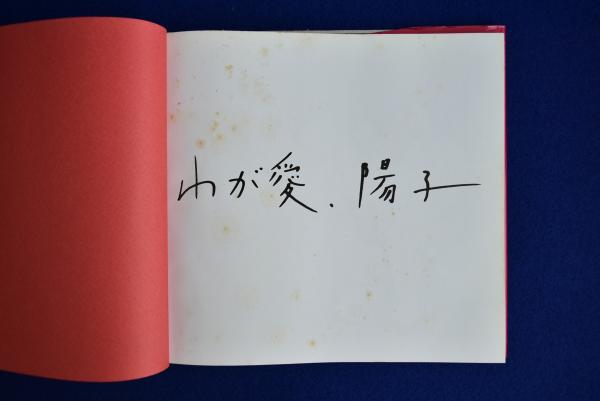 わが愛、陽子